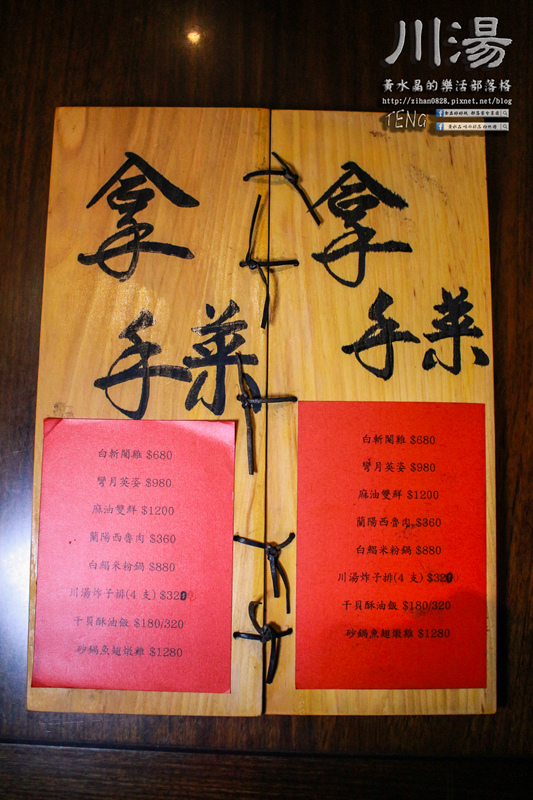 川湯
黃水晶的樂活部落格
http://sihan0828.pixnet.net/blog
TENG
拿手菜
白斬閹雞 $680
彎月英姿 $980
麻油雙鮮 $1200
蘭陽西魯肉 $360
白鯧米粉鍋 $880
川湯炸子排(4 支) $320
干貝酥油飯 $180/320
砂鍋魚翅燉雞 $1280
拿手菜
白斬閹雞 $680
彎月英姿 $980
麻油雙鮮 $1200
蘭陽西魯肉 $360
白鯧米粉鍋 $880
川湯炸子排(4 支) $320
干貝酥油飯 $180/320
砂鍋魚翅燉雞 $1280